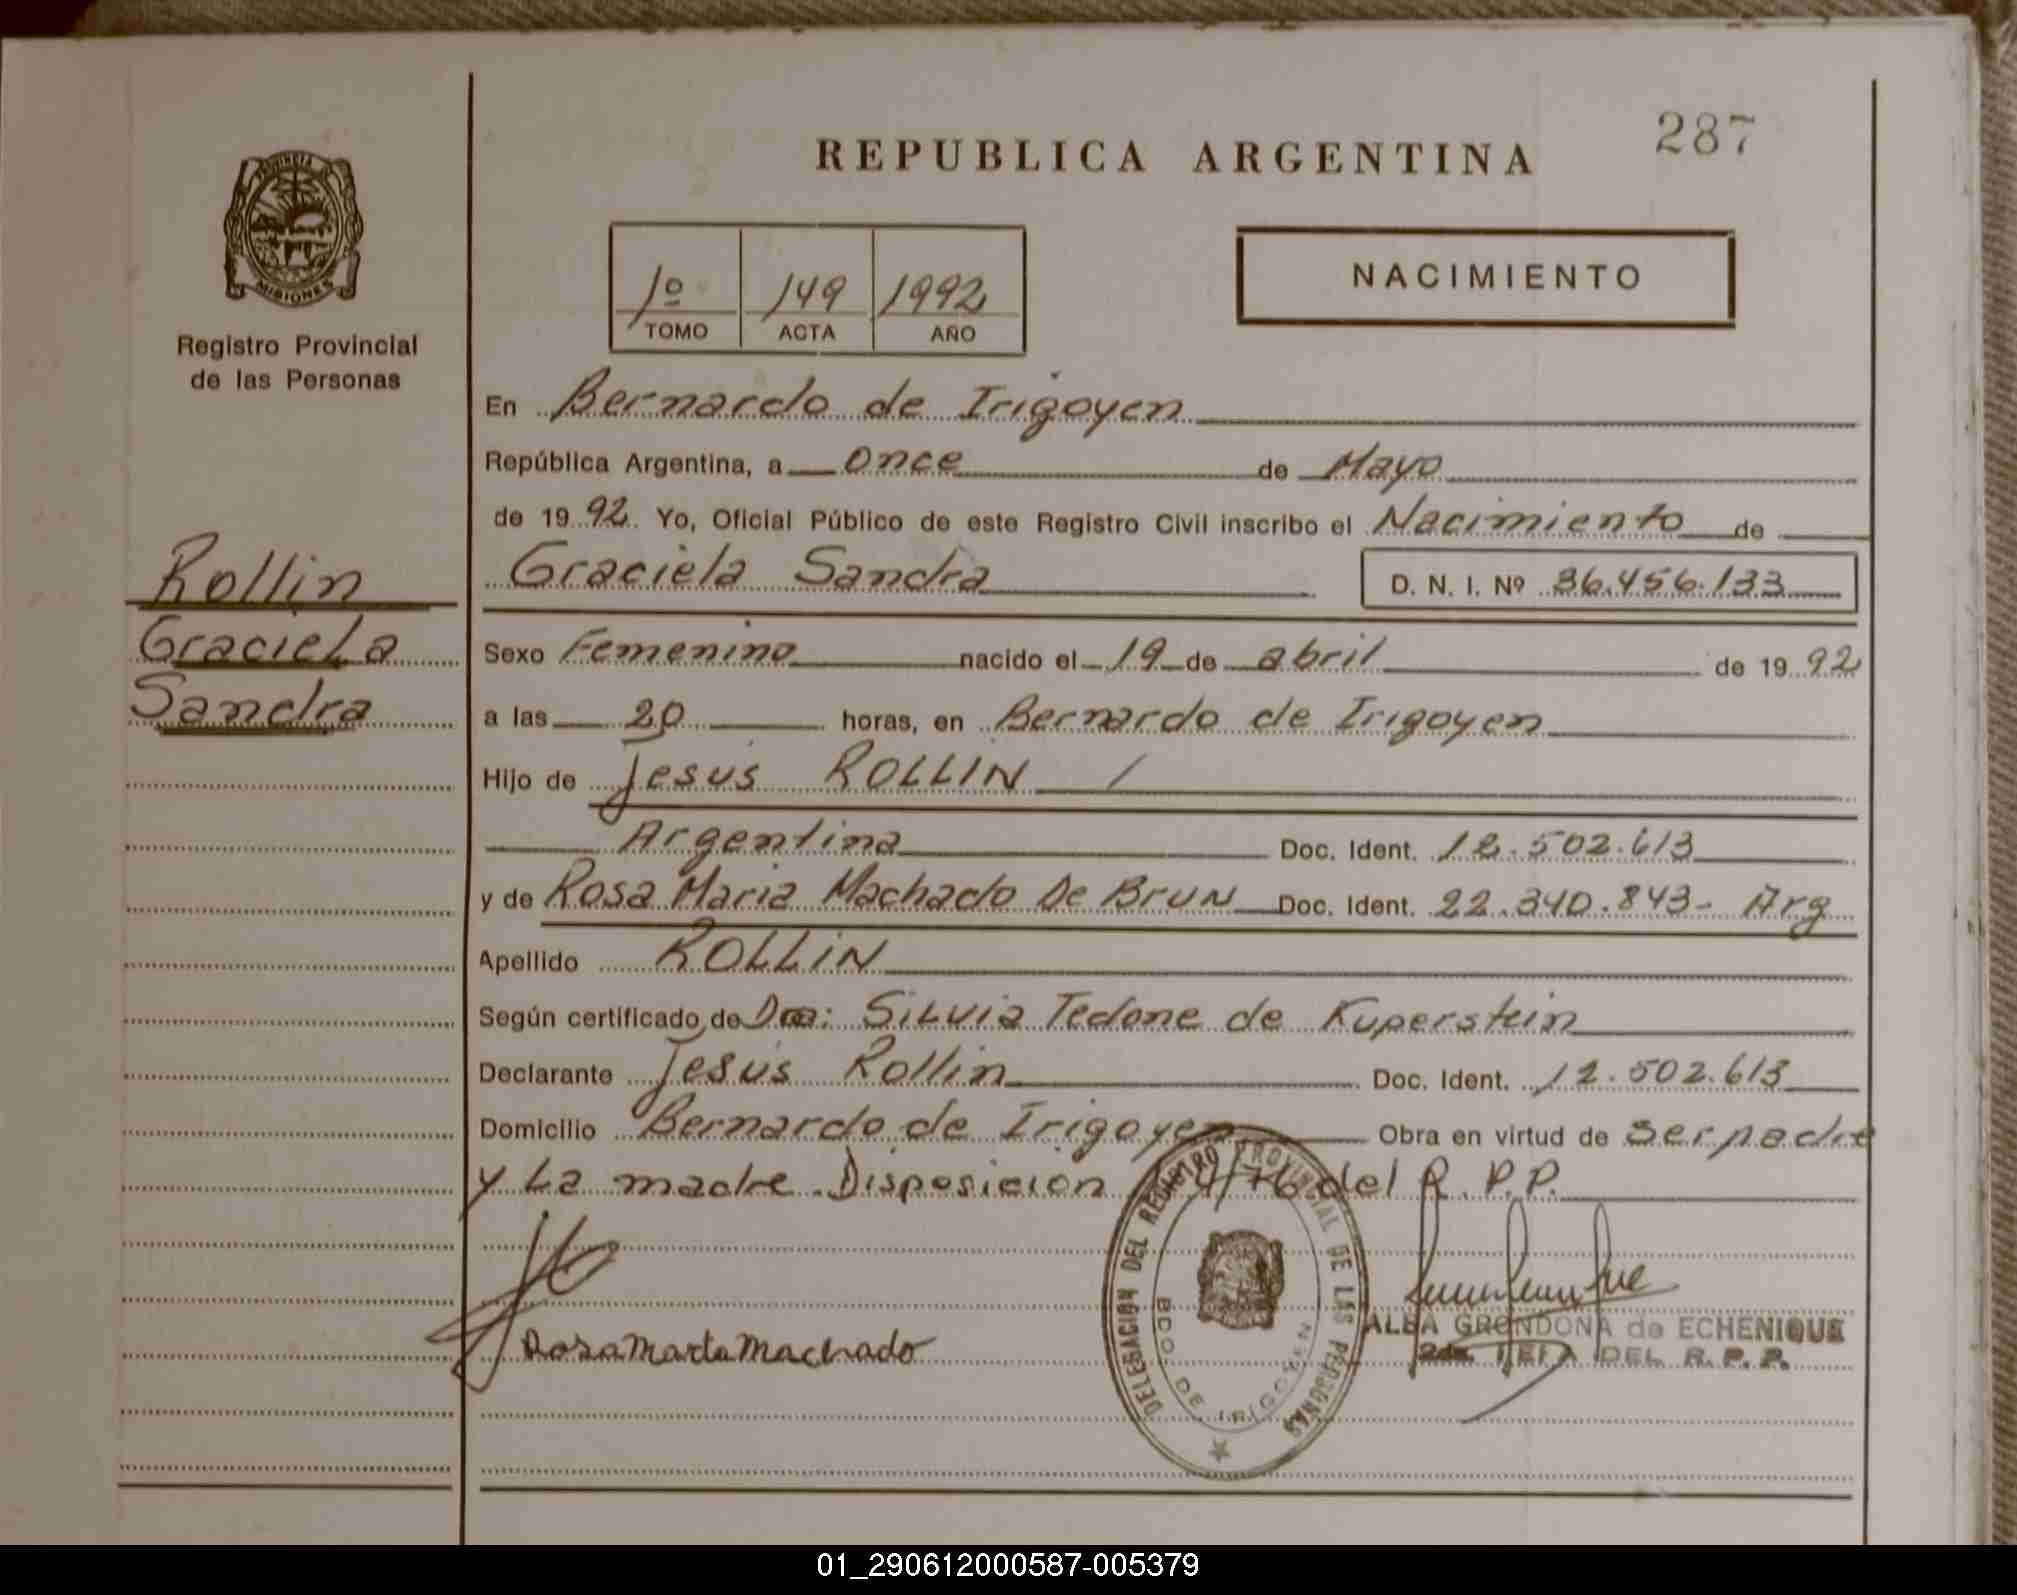 287
REPUBLICA ARGENTINA
PROVINCIA
MISIONES
Registro Provincial
de las Personas
1º 149 1992
TOMO ACTA AÑO
NACIMIENTO
En Bernardo de Irigoyen
República Argentina, a once de Mayo
de 19 92. Yo, Oficial Público de este Registro Civil inscribo el Nacimiento de
Graciela Sandra D. N. I. Nº 36.456.133
Rollin
Graciela
Sandra
Sexo Femenino nacido el 19 de abril de 19 92
a las 20 horas, en Bernardo de Irigoyen
Hijo de Jesús ROLLIN /
Argentina Doc. Ident. 12.502.613
y de Rosa Maria Machado De BRUN Doc. Ident. 22.340.843- Arg
Apellido ROLLIN
Según certificado de Dra: Silvia Tedone de Kuperstein
Declarante Jesús Rollin Doc. Ident. 12.502.613
Domicilio Bernardo de Irigoyen Obra en virtud de ser padre
y La madre. Disposicion /76 del R.P.P.
Rosa Marta Machado
DELEGACION DEL REGISTRO PROVINCIAL DE LAS PERSONAS
BDO. DE IRIGOYEN
ALBA GRONDONA de ECHENIQUE
JEFA DEL R.P.P.
01_290612000587-005379